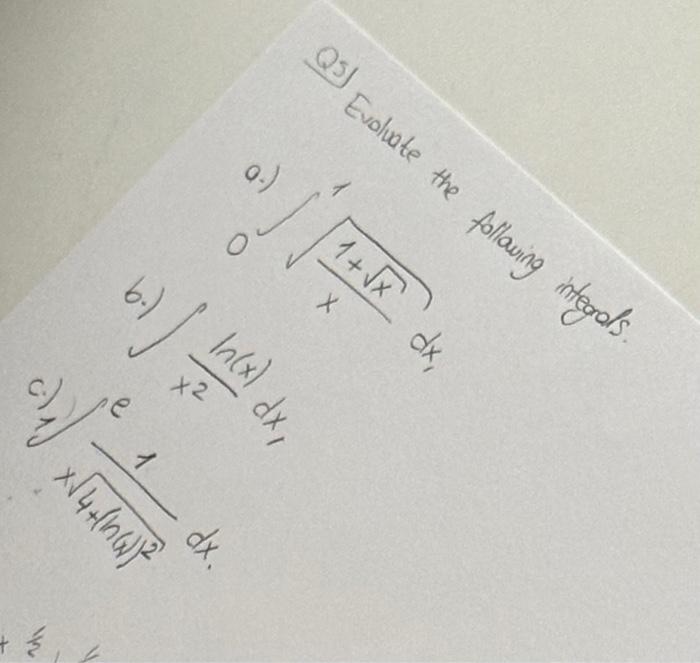 Q5) Evaluate the following integrals.
a.) ∫₀¹ √((1+√x)/x) dx,
b.) ∫ ln(x)/x² dx,
c.) ∫₁ᵉ 1/(x√(4+(ln(x))²)) dx.